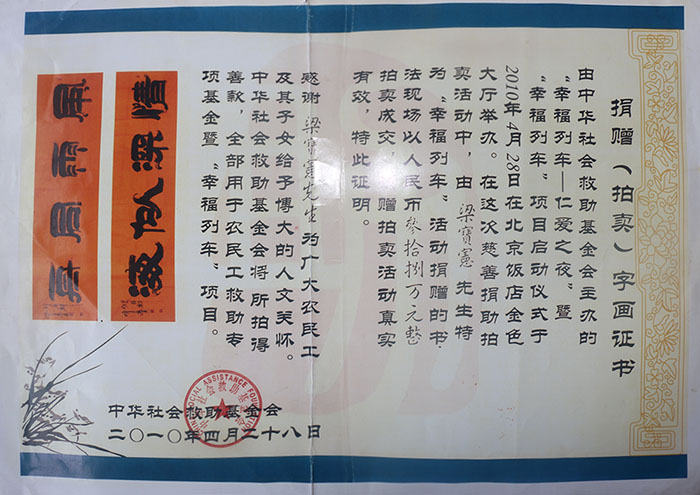 捐赠（拍卖）字画证书
由中华社会救助基金会主办的
“幸福列车—仁爱之夜”暨
“幸福列车”项目启动仪式于
2010年4月28日在北京饭店金色
大厅举办。在这次慈善捐助拍
卖活动中，由 梁寶憲 先生特
为“幸福列车”活动捐赠的书
法现场以人民币 參拾捌万元整
拍卖成交，赠拍卖活动真实
有效，特此证明。
感谢 梁寶憲先生 为广大农民工
及其子女给予博大的人文关怀。
中华社会救助基金会将所拍得
善款，全部用于农民工救助专
项基金暨“幸福列车”项目。
中华社会救助基金会
二〇一〇年四月二十八日
SOCIAL ASSISTANCE